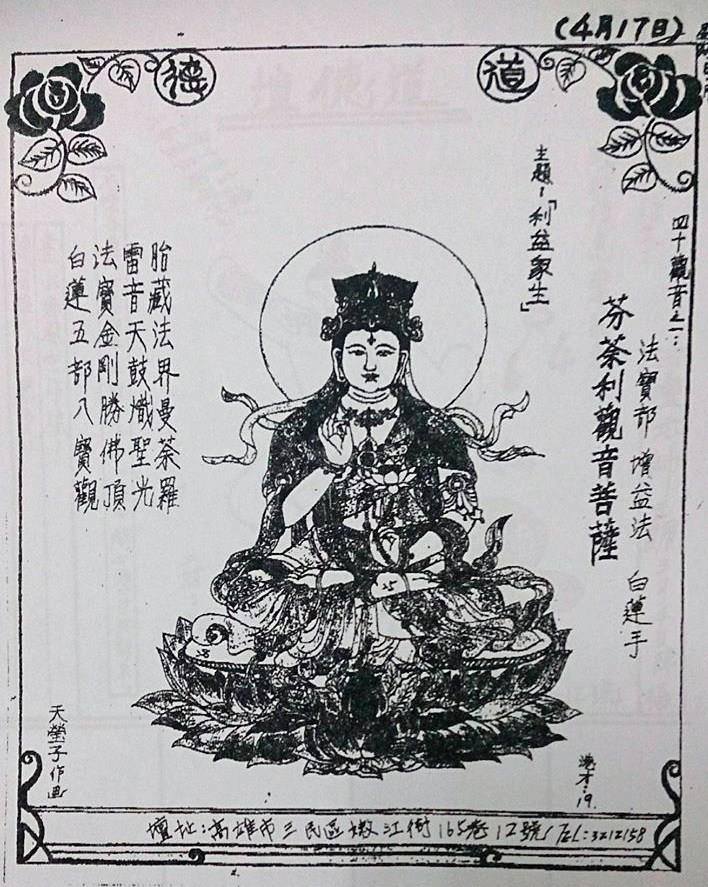 (4月17日)
道德
四十觀音之一:
法寶部 增益法 白蓮手
芬荼利觀音菩薩
主題:「利益眾生」
胎藏法界曼荼羅
雷音天鼓熾聖光
法寶金剛勝佛頂
白蓮五部八寶觀
天瑩子作画
壇址:高雄市三民區嫩江街165巷12號/TEL:3212158
道德壇